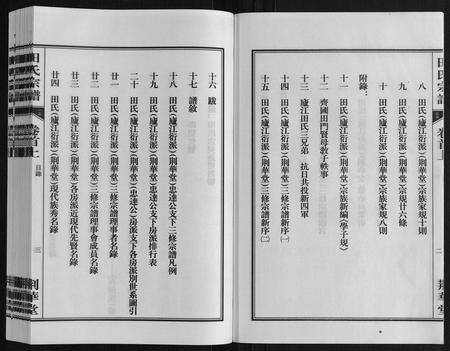 田氏宗譜
卷首上
二
荊華堂
八 田氏(廬江衍派)(荆華堂)宗族家規十則
九 田氏(廬江衍派)(荆華堂)宗規廿六條
十 田氏(廬江衍派)(荆華堂)宗族家規八則
附錄:
十一 田氏(廬江衍派)(荆華堂)宗族新編《學子規》
十二 齊國田門賢母教子軼事
十三 廬江田氏三兄弟 抗日共投新四軍
十四 田氏(廬江衍派)(荆華堂)三修宗譜新序(一)
十五 田氏(廬江衍派)(荆華堂)三修宗譜新序(二)
十六 跋
十七 譜敘
十八 田氏(廬江衍派)(荆華堂)(忠達公支下)三修宗譜凡例
十九 田氏(廬江衍派)(荆華堂)(忠達公支下)房派排行表
二十 田氏(廬江衍派)(荆華堂)(忠達公)房派支下各房派別世系圖引
廿一 田氏(廬江衍派)(荆華堂)三修宗譜理事者名錄
廿二 田氏(廬江衍派)(荆華堂)三修宗譜理事會成員名錄
廿三 田氏(廬江衍派)(荆華堂)各房派近現代先賢名錄
廿四 田氏(廬江衍派)(荆華堂)現代族秀名錄
田氏宗譜
卷首上
目錄
三
荊華堂